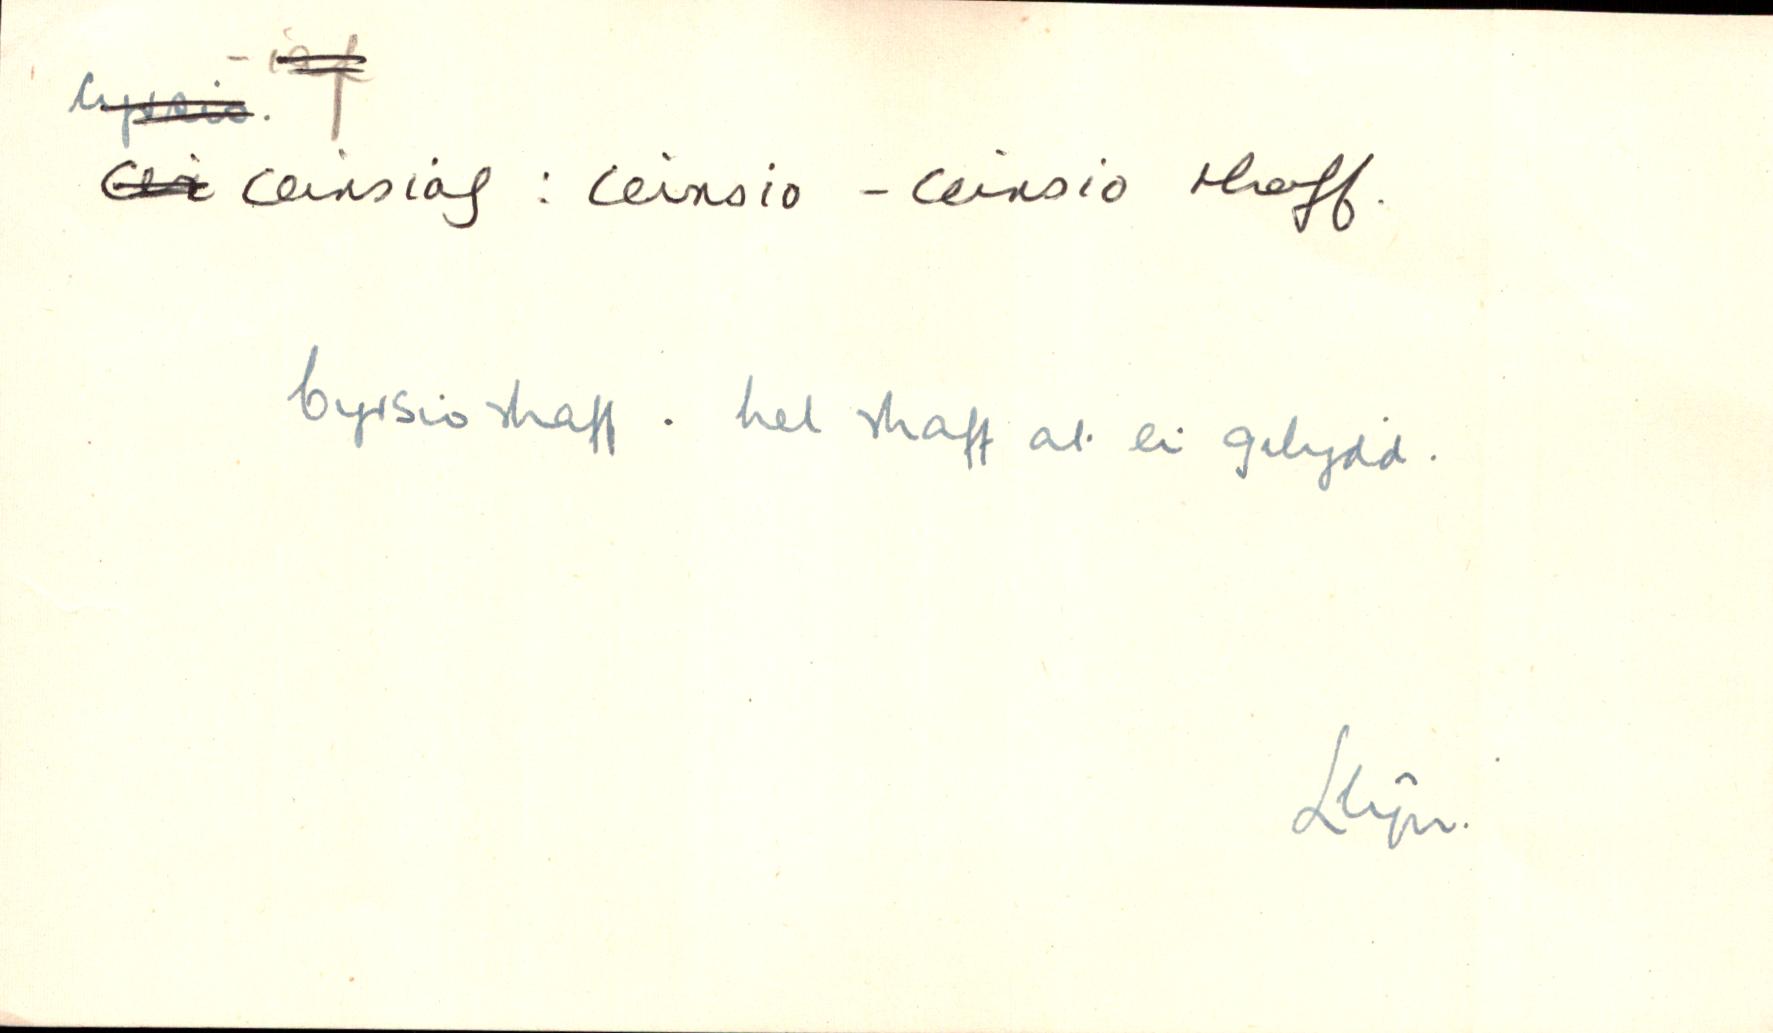 - iaf
cyrsio.
cei ceirsiaf : ceirsio - ceirsio rhaff.
Cyrsio rhaff. hel rhaff at ei gilydd.
Llŷn.